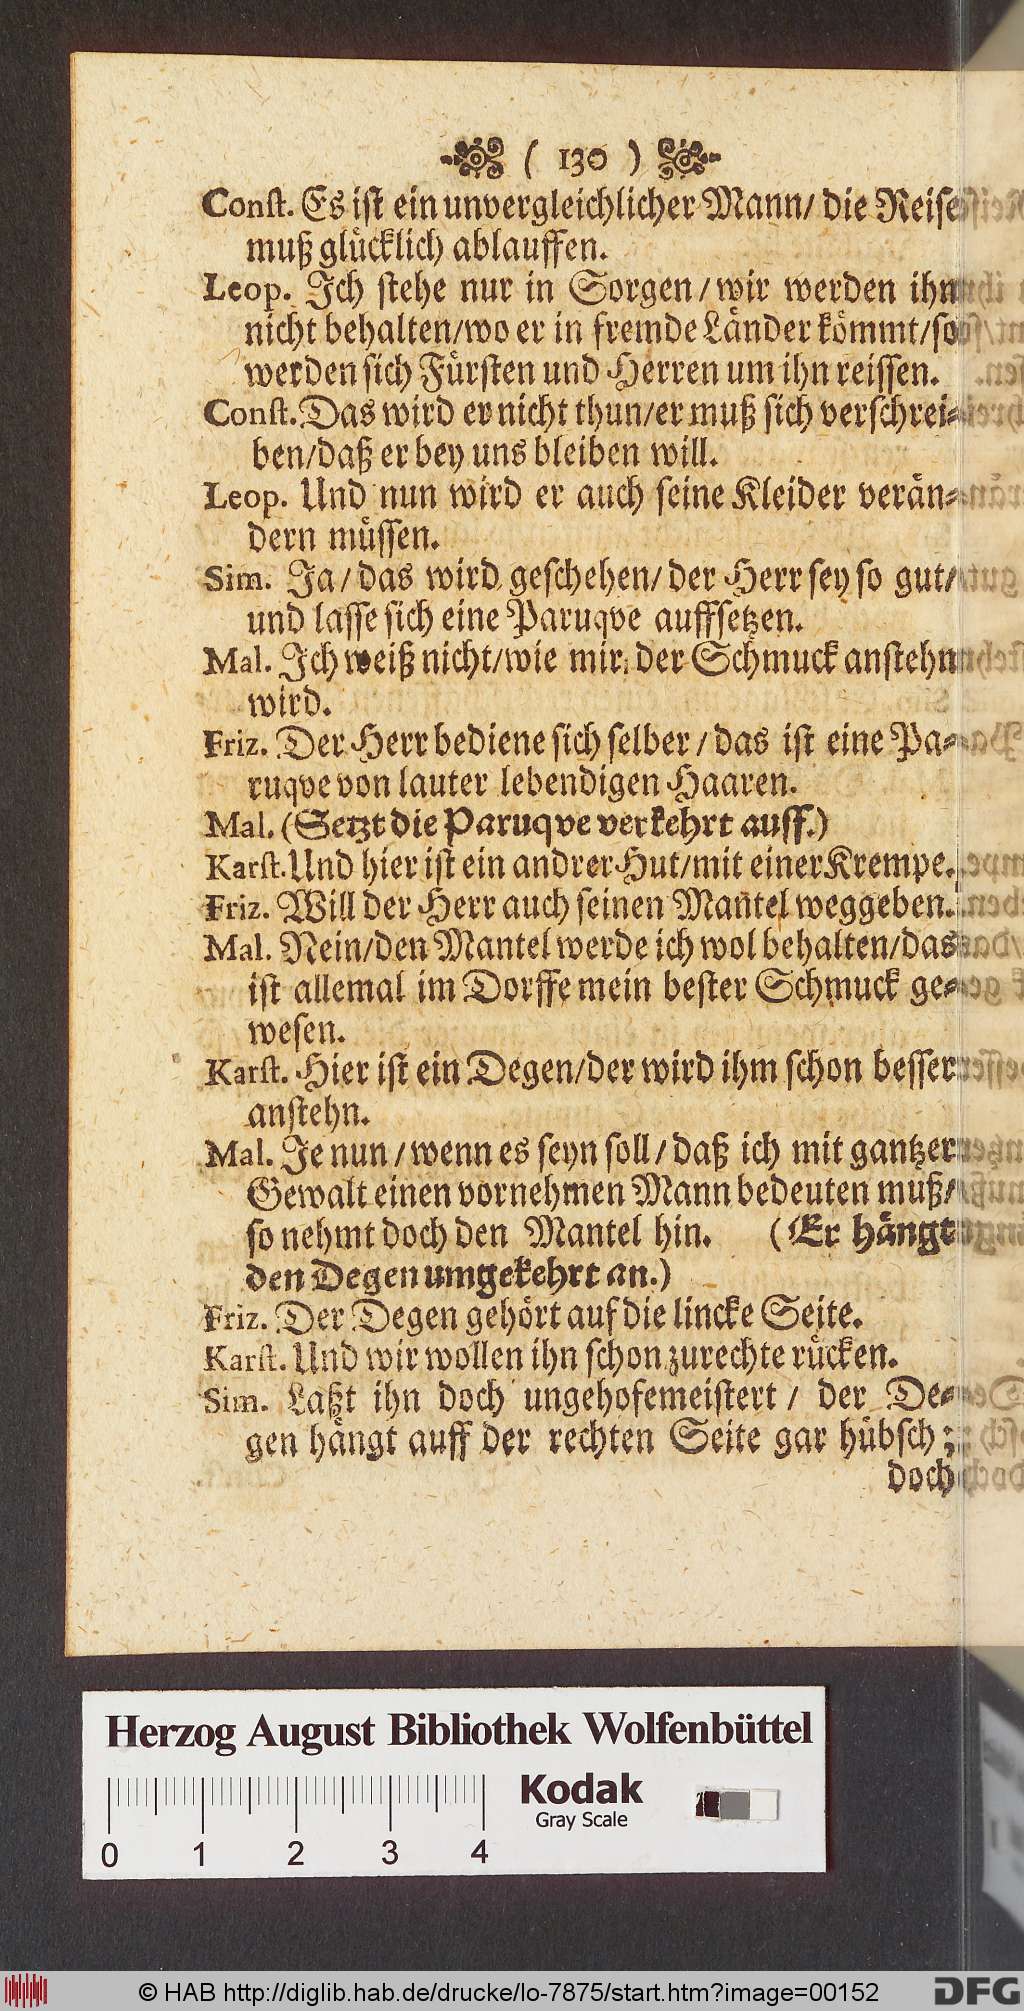 ( 130 )
Const. Es ist ein unvergleichlicher Mann/ die Reise
muß glücklich ablauffen.
Leop. Ich stehe nur in Sorgen/wir werden ihn
nicht behalten/wo er in fremde Länder kömmt/so
werden sich Fürsten und Herren um ihn reissen.
Const. Das wird er nicht thun/er muß sich verschrei-
ben/daß er bey uns bleiben will.
Leop. Und nun wird er auch seine Kleider verän-
dern müssen.
Sim. Ja/das wird geschehen/der Herr sey so gut/
und lasse sich eine Paruqve auffsetzen.
Mal. Ich weiß nicht/wie mir der Schmuck anstehn
wird.
Friz. Der Herr bediene sich selber/das ist eine Pa-
ruqve von lauter lebendigen Haaren.
Mal. (Setzt die Paruqve verkehrt auff.)
Karst. Und hier ist ein andrer Hut/mit einer Krempe.
Friz. Will der Herr auch seinen Mantel weggeben.
Mal. Nein/den Mantel werde ich wol behalten/das
ist allemal im Dorffe mein bester Schmuck ge-
wesen.
Karst. Hier ist ein Degen/der wird ihm schon besser
anstehn.
Mal. Je nun/wenn es seyn soll/daß ich mit gantzer
Gewalt einen vornehmen Mann bedeuten muß/
so nehmt doch den Mantel hin. (Er hängt
den Degen umgekehrt an.)
Friz. Der Degen gehört auf die lincke Seite.
Karst. Und wir wollen ihn schon zurechte rücken.
Sim. Laßt ihn doch ungehofemeistert/ der De-
gen hängt auff der rechten Seite gar hübsch;
doch
Herzog August Bibliothek Wolfenbüttel
Kodak
Gray Scale
0 1 2 3 4
© HAB http://diglib.hab.de/drucke/lo-7875/start.htm?image=00152
DFG